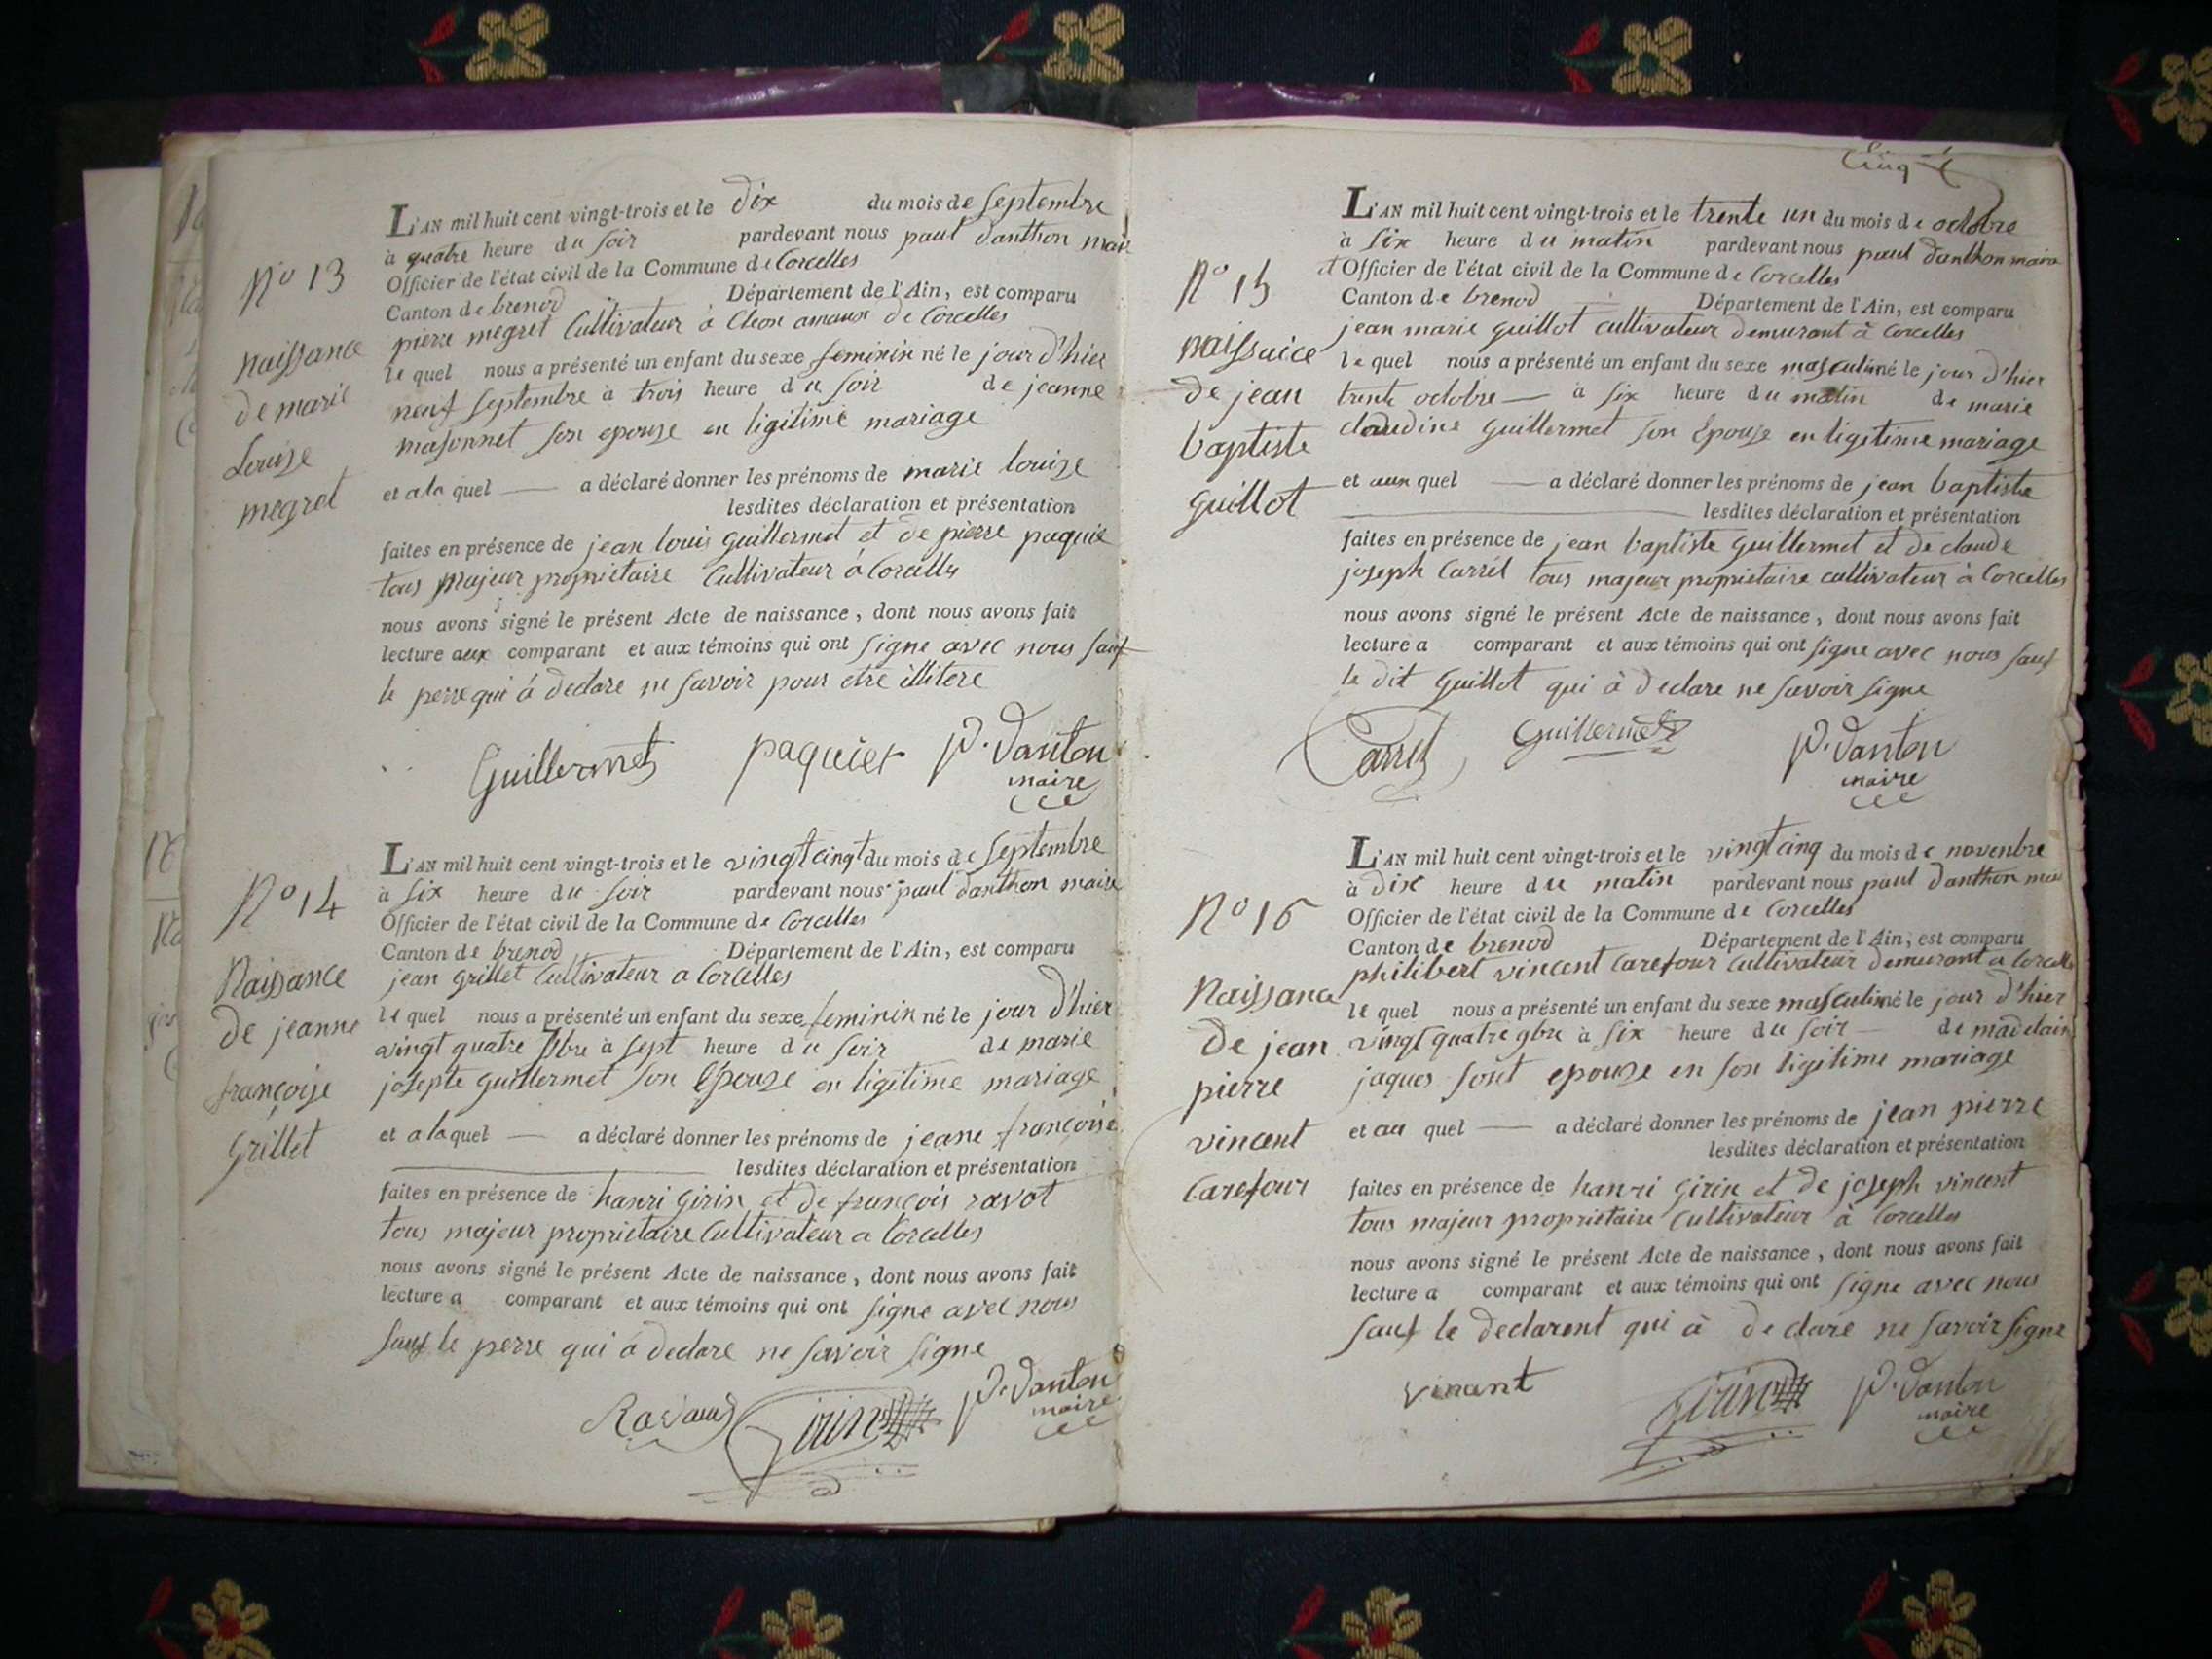 L'AN mil huit cent vingt-trois et le dix du mois de septembre
à quatre heure du soir pardevant nous paul danthon maire
Officier de l'état civil de la Commune de Corcelles
Canton de brenod Département de l'Ain, est comparu
pierre megret Cultivateur a de Corcelles
le quel nous a présenté un enfant du sexe feminin né le jour d'hier
neuf septembre à trois heure du soir de jeanne
masonnet son epouse en ligitime mariage
et ala quel a déclaré donner les prénoms de marie louise
lesdites déclaration et présentation
faites en présence de jean louis guillermet et de pierre paquie
tous majeur proprietaire Cultivateur à Corcelles
nous avons signé le présent Acte de naissance, dont nous avons fait
lecture aux comparant et aux témoins qui ont signe avec nous sauf
le perre qui à declare ne savoir pour etre illitere
Guillermet paquier P. Danton
maire
N° 13
naissance
de marie
Louise
megret
L'AN mil huit cent vingt-trois et le vingt cinqt du mois de Septembre
à six heure du soir pardevant nous paul danthon maire
Officier de l'état civil de la Commune de Corcelles
Canton de brenod Département de l'Ain, est comparu
jean grillet Cultivateur a Corcelles
le quel nous a présenté un enfant du sexe feminin né le jour d'hier
vingt quatre 7bre à sept heure du soir de marie
josepte guillermet son Epouse en ligitime mariage
et a la quel a déclaré donner les prénoms de jeane francoise
lesdites déclaration et présentation
faites en présence de hanri girin et de francois ravot
tous majeur proprietaire Cultivateur a Corcelles
nous avons signé le présent Acte de naissance, dont nous avons fait
lecture a comparant et aux témoins qui ont signe avec nous
sauf le perre qui à declare ne savoir signe
Girin P. Danton
maire
N° 14
Naissance
de jeanne
françoise
grillet
L'AN mil huit cent vingt-trois et le trente un du mois de octobre
à six heure du matin pardevant nous paul danthon maire
et Officier de l'état civil de la Commune de Corcelles
Canton de brenod Département de l'Ain, est comparu
jean marie guillot cultivateur demurant à Corcelles
le quel nous a présenté un enfant du sexe masculin né le jour d'hier
trente octobre à six heure du matin de marie
claudine guillermet son Epouse en ligetime mariage
et aux quel a déclaré donner les prénoms de jean baptiste
lesdites déclaration et présentation
faites en présence de jean baptiste guillermet et de claude
joseph Carrel tous majeur proprietaire cultivateur à Corcelles
nous avons signé le présent Acte de naissance, dont nous avons fait
lecture a comparant et aux témoins qui ont signe avec nous sauf
le dit guillot qui à declare ne savoir signe
Carrel Guillermet P. Danton
maire
N° 15
naissaice
de jean
baptiste
guillot
L'AN mil huit cent vingt-trois et le vingt cinq du mois de novenbre
à dix heure du matin pardevant nous paul danthon mai
Officier de l'état civil de la Commune de Corcelles
Canton de brenod Département de l'Ain, est comparu
philibert vincent Carefour Cultivateur demurant a Corcelle
le quel nous a présenté un enfant du sexe masculin né le jour d'hier
vingt quatre 9bre à six heure du soir de madelain
jaques sout epouse en son ligitime mariage
et au quel a déclaré donner les prénoms de jean pierre
lesdites déclaration et présentation
faites en présence de hanri girin et de joseph vincent
tous majeur proprietaire Cultivateur à Corcelles
nous avons signé le présent Acte de naissance, dont nous avons fait
lecture a comparant et aux témoins qui ont signe avec nous
sauf le declarent qui à declare ne savoir signe
vincent Girin P. Danton
maire
N° 16
Naissance
De jean
pierre
vincent
Carefour